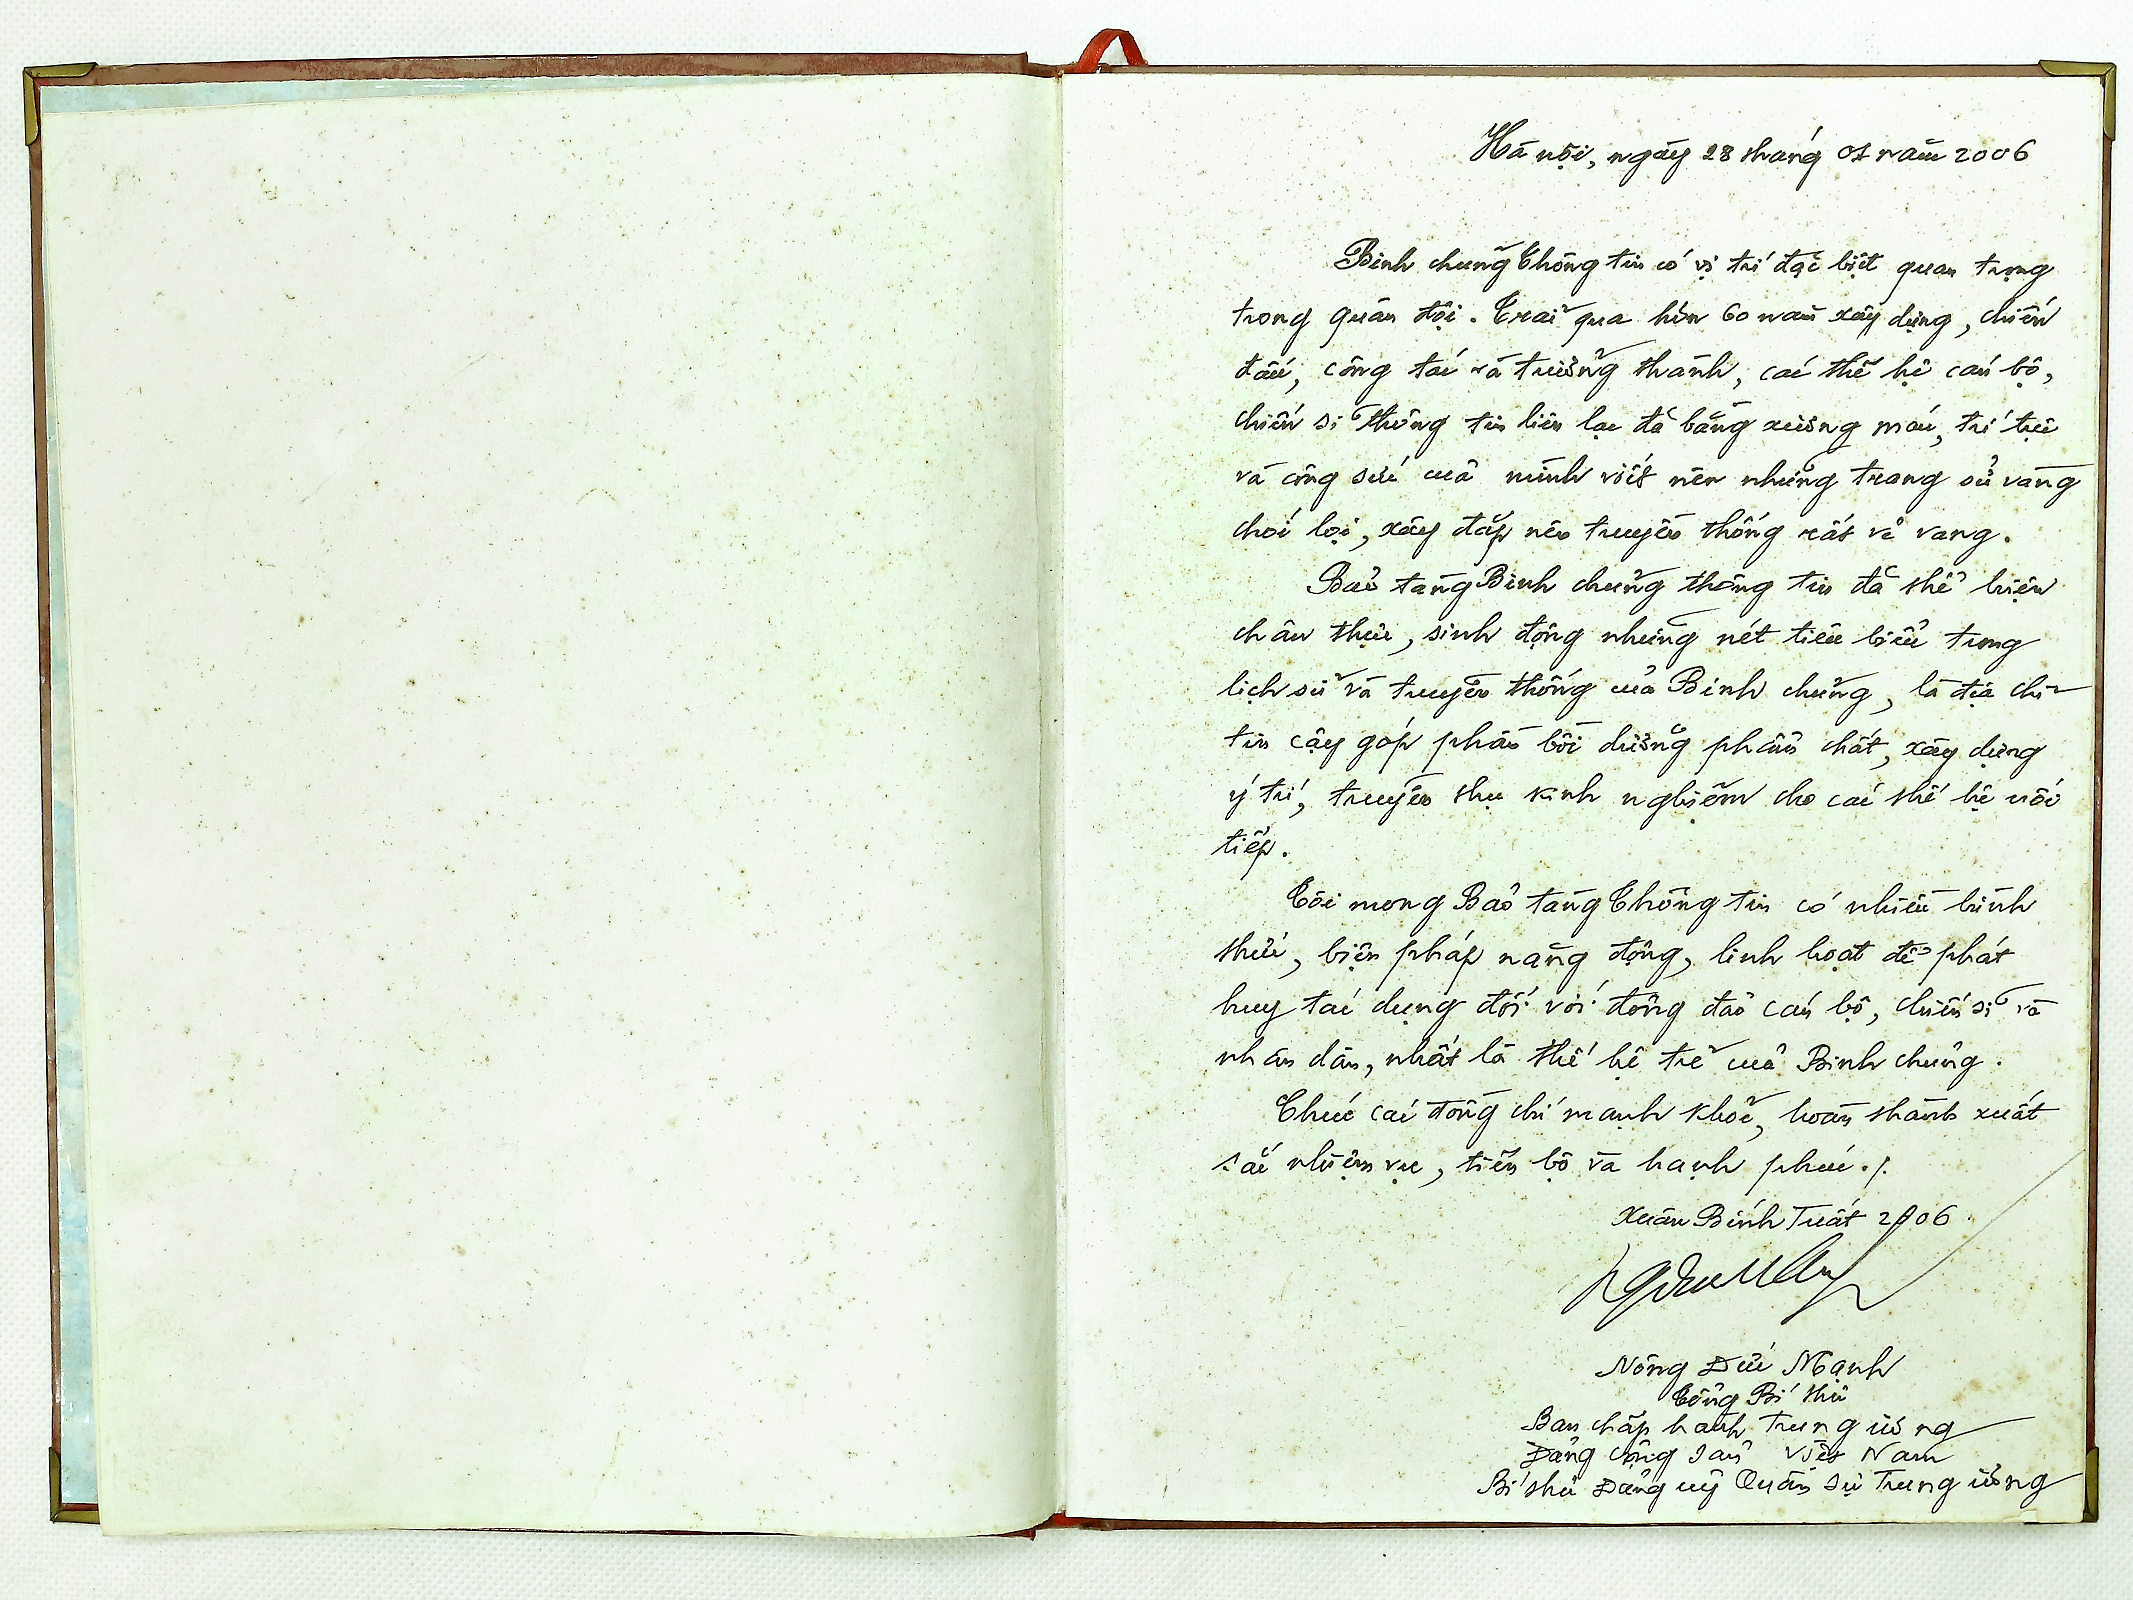 Hà nội, ngày 28 tháng 01 năm 2006
Binh chủng Thông tin có vị trí đặc biệt quan trọng
trong quân đội. Trải qua hơn 60 năm xây dựng, chiến
đấu, công tác và trưởng thành, các thế hệ cán bộ,
chiến sĩ Thông tin liên lạc đã bằng xương máu, trí tuệ
và công sức của mình viết nên những trang sử vàng
chói lọi, xây đắp nên truyền thống rất vẻ vang.
Bảo tàng Binh chủng thông tin đã thể hiện
chân thực, sinh động những nét tiêu biểu trong
lịch sử và truyền thống của Binh chủng, là địa chỉ
tin cậy góp phần bồi dưỡng phẩm chất, xây dựng
ý trí, truyền thụ kinh nghiệm cho các thế hệ nối
tiếp.
Tôi mong Bảo tàng Thông tin có nhiều hình
thức, biện pháp năng động, linh hoạt để phát
huy tác dụng đối với đông đảo cán bộ, chiến sĩ và
nhân dân, nhất là thế hệ trẻ của Binh chủng.
Chúc các đồng chí mạnh khoẻ, hoàn thành xuất
sắc nhiệm vụ, tiến bộ và hạnh phúc./.
Xuân Bính Tuất 2006
Nông Đức Mạnh
Tổng Bí thư
Ban chấp hành Trung ương
Đảng Cộng sản Việt Nam
Bí thư Đảng uỷ Quân sự Trung ương